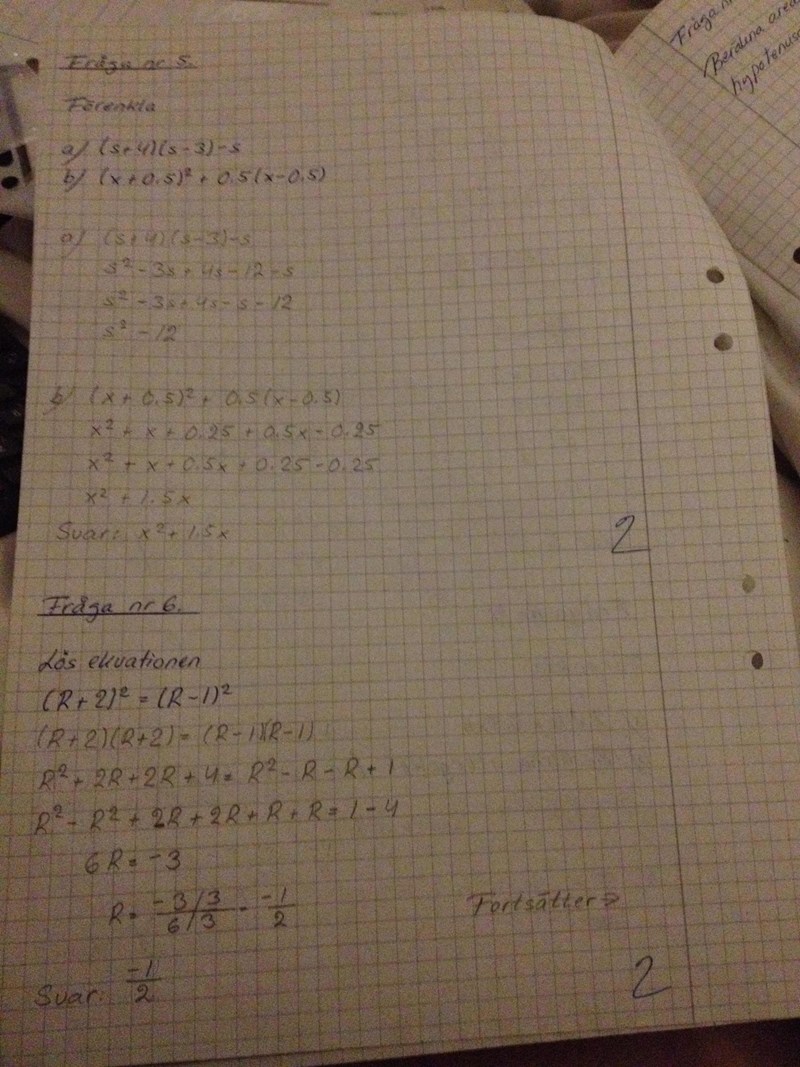 Fråga nr 5.
Förenkla
a) (s+4)(s-3)-s
b) (x+0.5)² + 0.5(x-0.5)
a) (s+4)(s-3)-s
s² - 3s + 4s - 12 - s
s² - 3s + 4s - s - 12
s² - 12
b) (x + 0.5)² + 0.5(x-0.5)
x² + x + 0.25 + 0.5x - 0.25
x² + x + 0.5x + 0.25 - 0.25
x² + 1.5x
Svar: x² + 1.5x
2
Fråga nr 6.
Lös ekvationen
(R+2)² = (R-1)²
(R+2)(R+2) = (R-1)(R-1)
R² + 2R + 2R + 4 = R² - R - R + 1
R² - R² + 2R + 2R + R + R = 1 - 4
6R = -3
R = \frac{-3/3}{6/3} = \frac{-1}{2}
Fortsätter →
Svar: \frac{-1}{2}
2
Fråga nr
Beräkna area
hypotenus